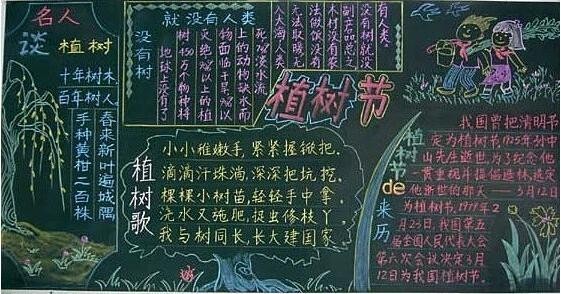 名人
谈植树
十年树木
百年树人
手种黄柑二百株
春来新叶遍城隅
没有树
就没有人类
地球上没有了
树,450万个物种将
灭绝 以上的植
物面临干旱 以
上的动物缺水而
死 淡水流
入大海,人类
无法取暖无
法做饭没有
木材没有农
副产品总之
没有树就没
有人类。
植树节
植树歌
小小稚嫩手,紧紧握锹把,
滴滴汗珠淌,深深把坑挖,
棵棵小树苗,轻轻手中拿,
浇水又施肥,捉虫修枝丫,
我与树同长,长大建国家
植树节de来历
我国曾把清明节
定为植树节1925年孙中
山先生逝世,为了纪念他
一贯重视并倡造林,选定
他逝世的那天——3月12日
为植树节。1979年2
月23日,我国第五
届全国人民代表大会
第六次会议决定3月
12日为我国植树节。